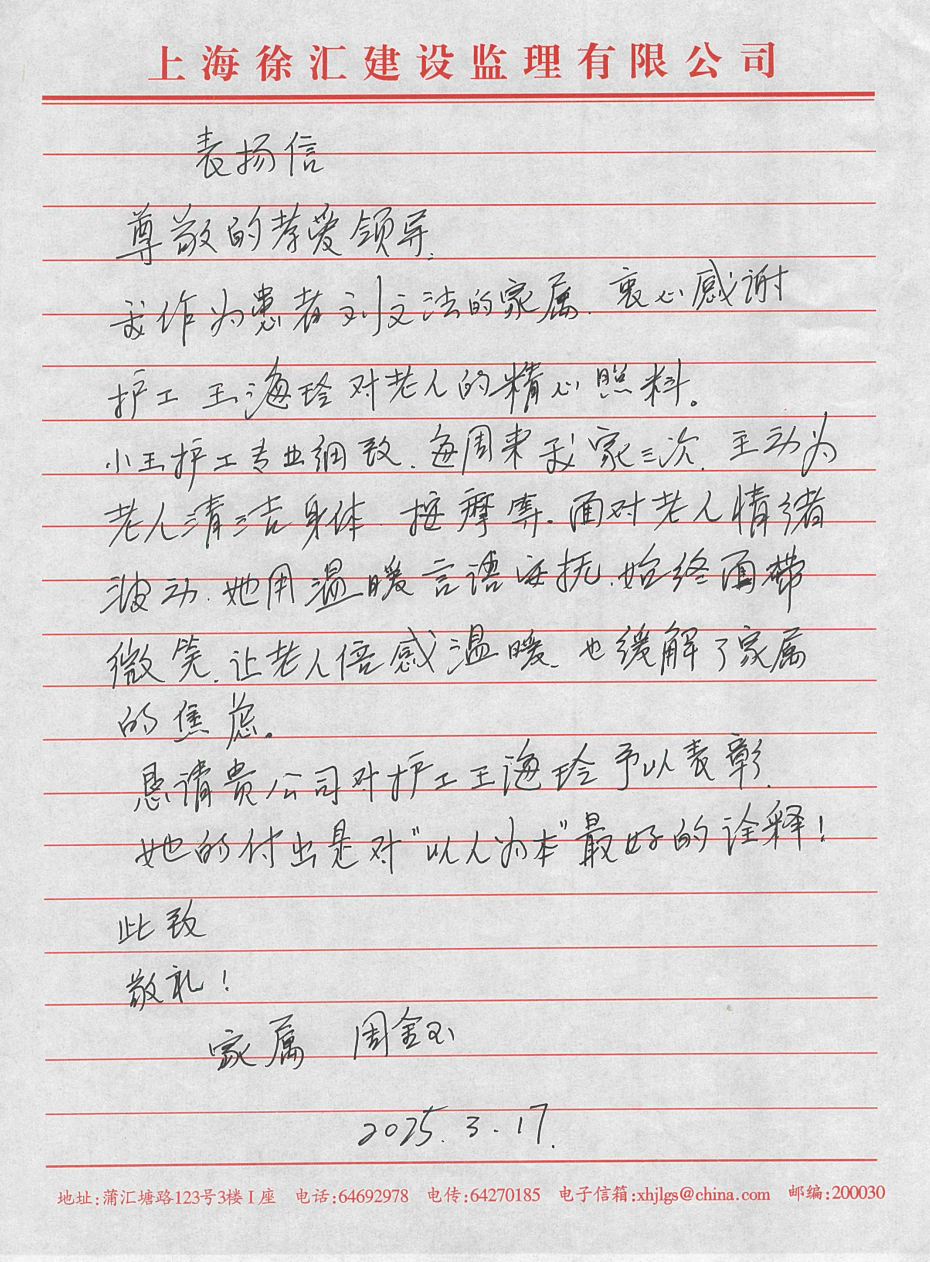 上海徐汇建设监理有限公司
表扬信
尊敬的孝爱领导.
我作为患者刘文法的家属、衷心感谢
护工王海玲对老人的精心照料。
小王护工专业细致、每周来我家三次、主动为
老人清洁身体、按摩等。面对老人情绪
波动、她用温暖言语安抚、始终面带
微笑、让老人倍感温暖、也缓解了家属
的焦虑。
恳请贵公司对护工王海玲予以表彰、
她的付出是对"以人为本"最好的诠释!
此致
敬礼!
家属 周金玉
2025.3.17.
地址:蒲汇塘路123号3楼I座 电话:64692978 电传:64270185 电子信箱:xhjlgs@china.com 邮编:200030